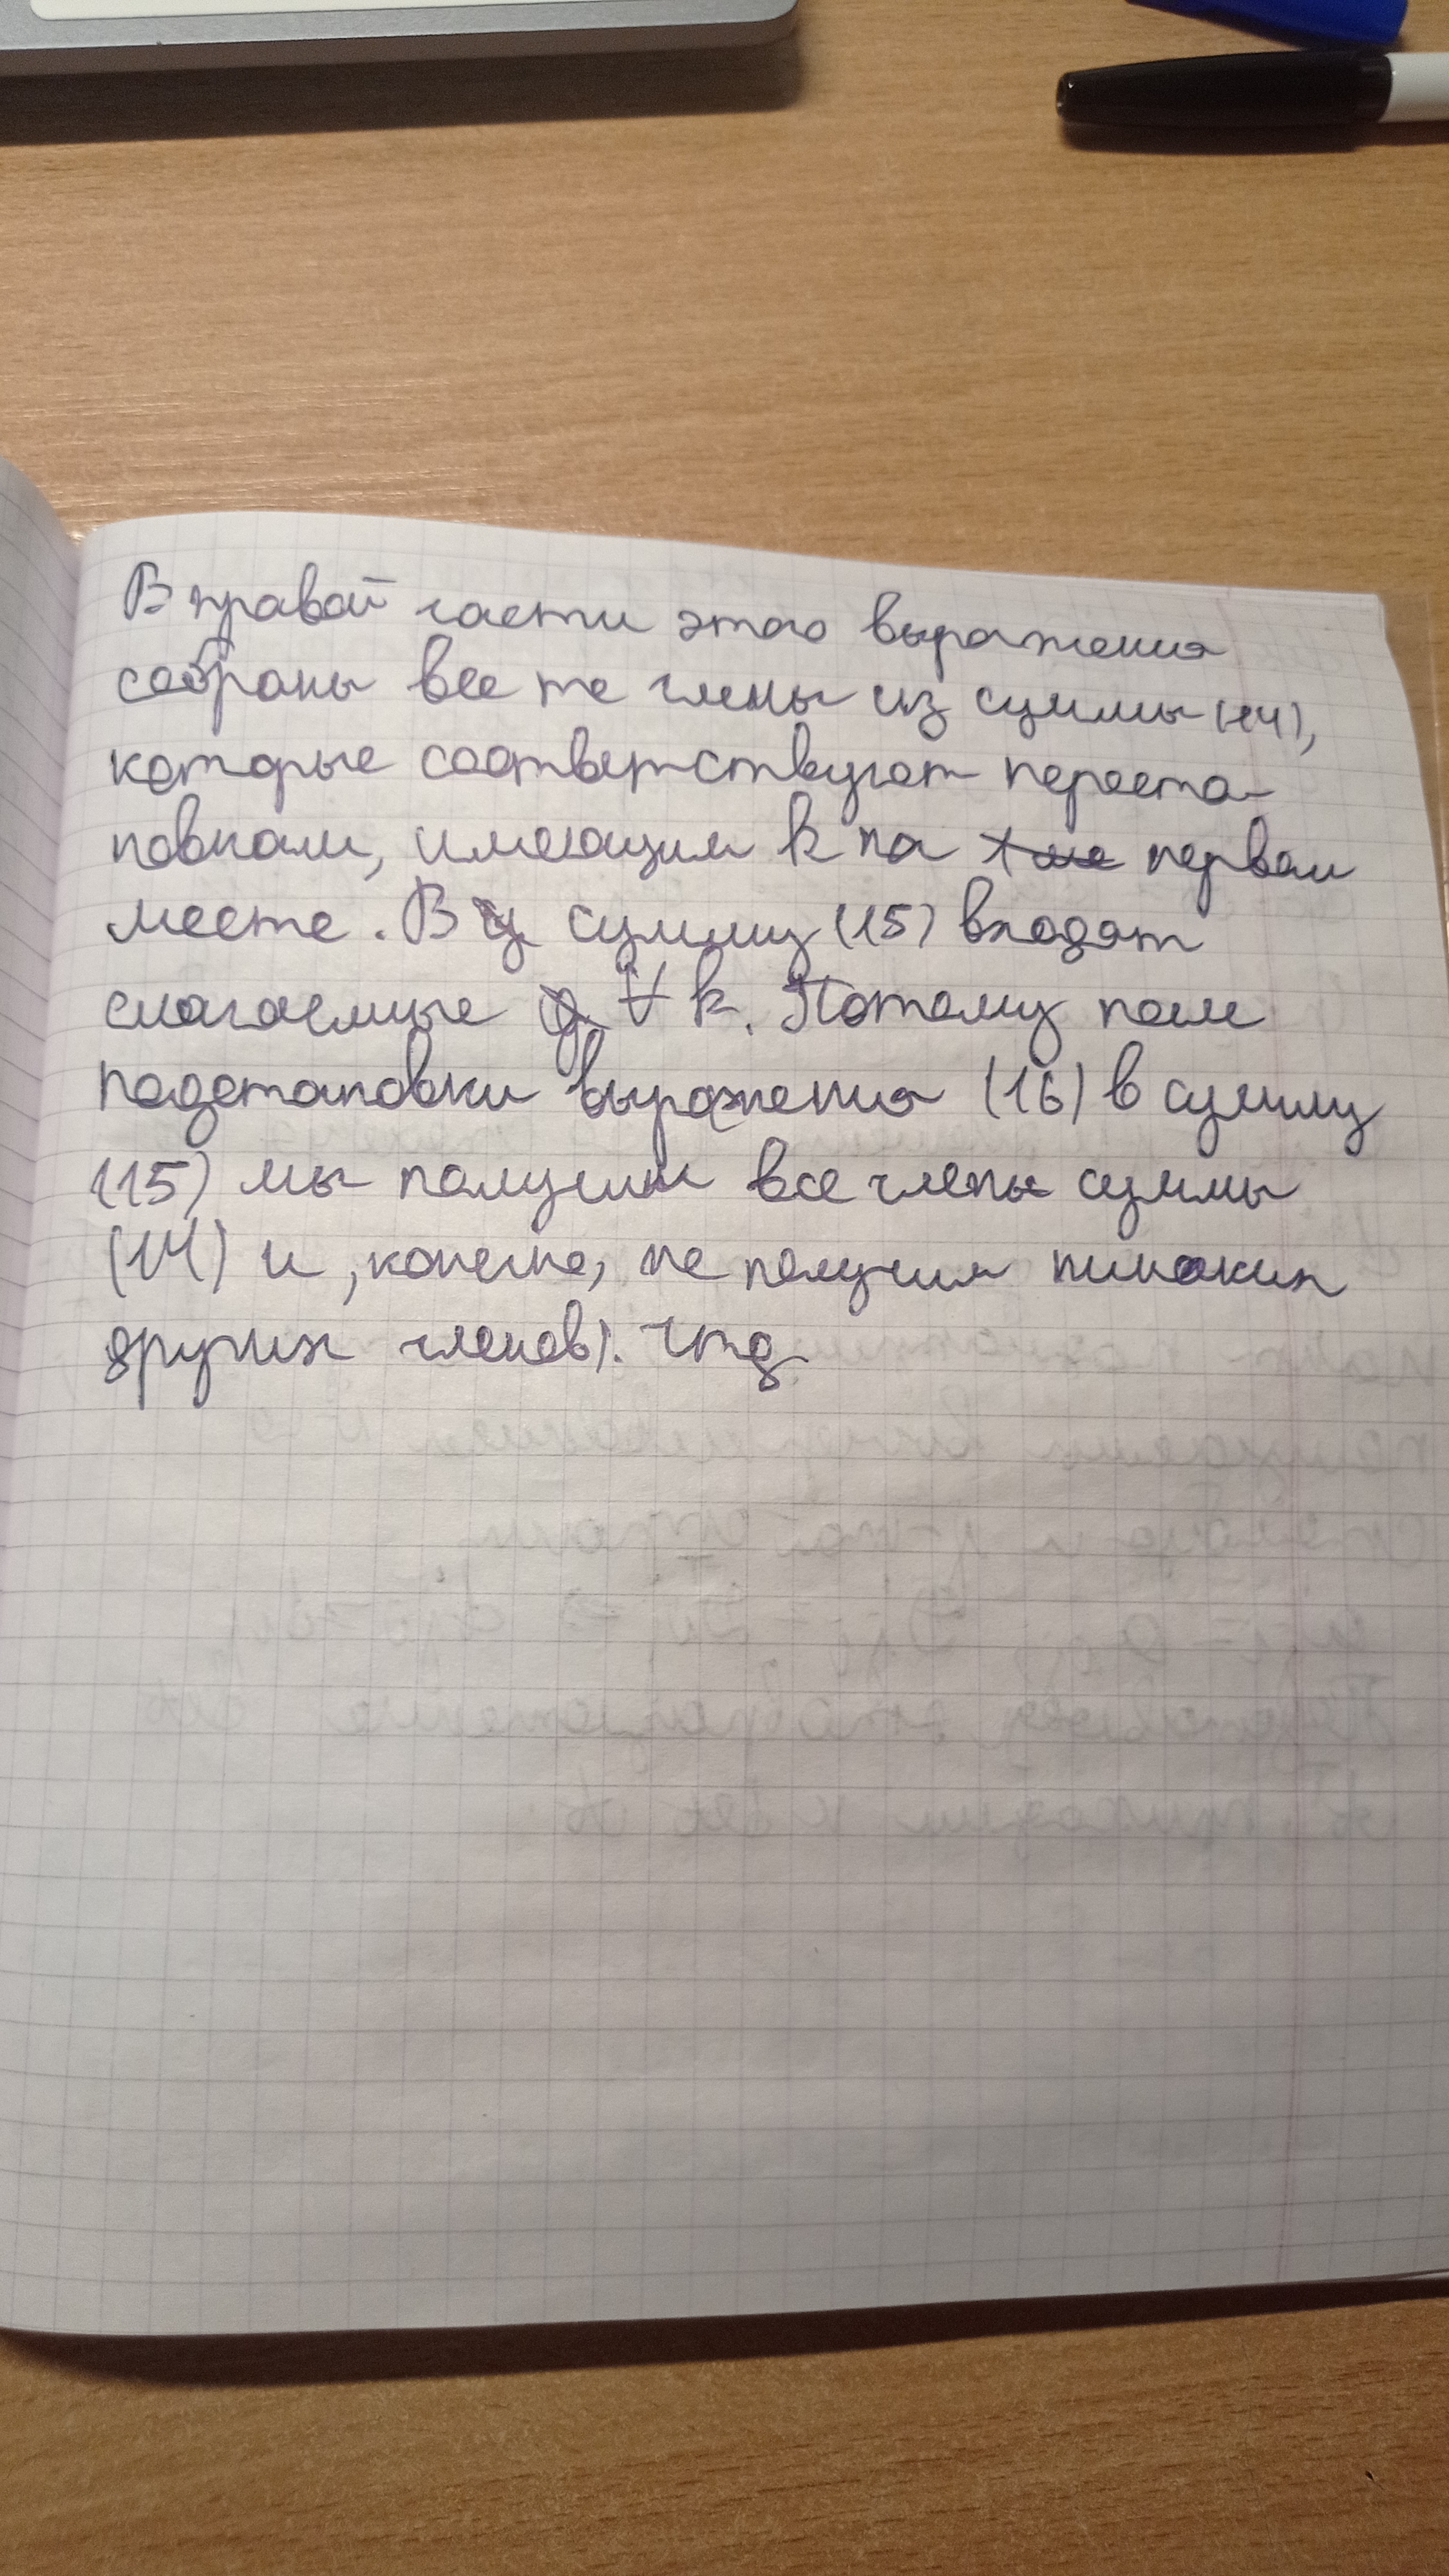 В правой части этого выражения
собраны все те члены из суммы (14),
которые соответствуют переста-
новкам, имеющим k на первом
месте. В сумму (15) входят
слагаемые ∀ k. Потому после
подстановки выражения (16) в сумму
(15) мы получим все члены суммы
(14) и, конечно, не получим никаких
других членов). чтд